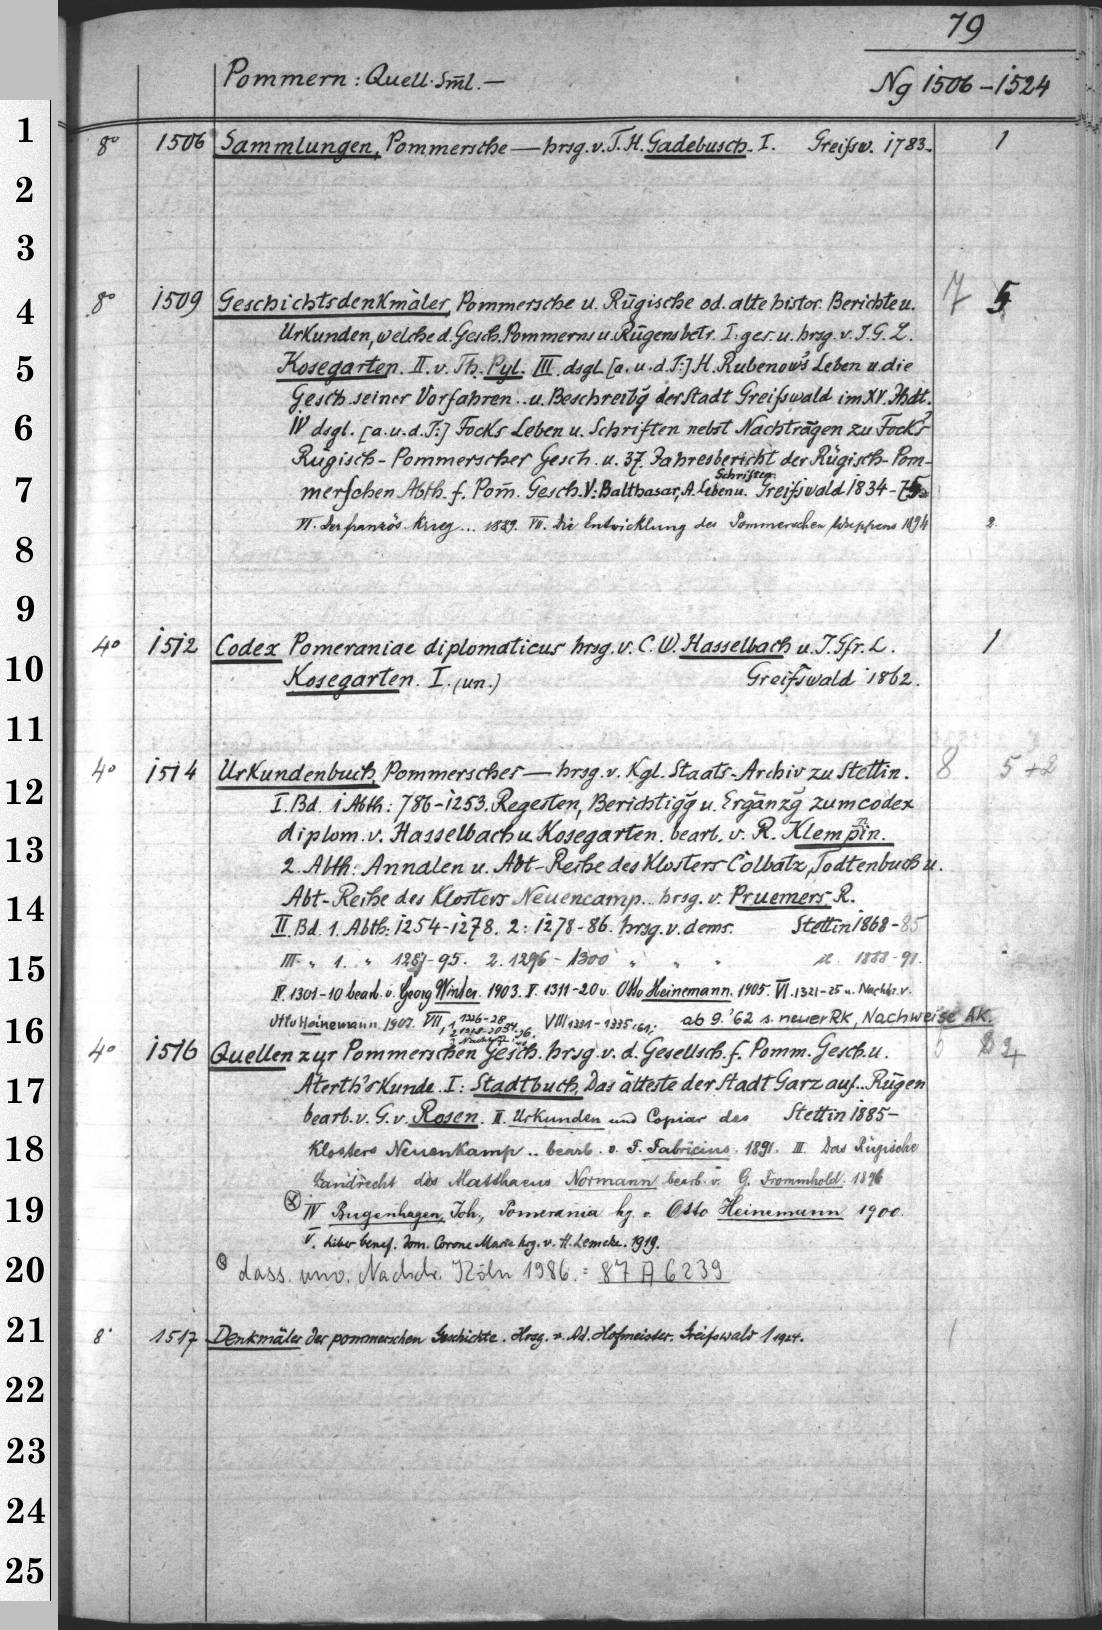 79
Pommern: Quell. Sm̄l. —
Ng 1506 – 1524
8° 1506 Sammlungen, Pommersche — hrsg. v. T. H. Gadebusch. I. Greifsw. 1783. 1
8° 1509 Geschichtsdenkmäler, Pommersche u. Rügische od. alte histor. Berichte u. 7 5
Urkunden, welche d. Gesch. Pommerns u. Rügens betr. I. ges. u. hrsg. v. J. G. L.
Kosegarten. II. v. Th. Pyl. III. dsgl. [a. u. d. T:] H. Rubenow's Leben u. die
Gesch. seiner Vorfahren .. u. Beschreibg̅ der Stadt Greifswald im XV. Jhdt.
IV dsgl. [a. u. d. T:] Focks Leben u. Schriften nebst Nachträgen zu Fock's
Rügisch-Pommerscher Gesch. u. 37. Jahresbericht der Rügisch-Pom-
merschen Abth. f. Pom̄. Gesch. V: Balthasar, A. Leben u. Schriften. Greifswald 1834–75.
VI. Der französ. Krieg ... 1889. VII. Die Entwicklung des Pommerschen Wappens 1894 2
4° 1512 Codex Pomeraniae diplomaticus hrsg. v. C. W. Hasselbach u. J. Gfr. L. 1
Kosegarten. I. (un.) Greifswald 1862.
4° 1514 Urkundenbuch, Pommersches — hrsg. v. Kgl. Staats-Archiv zu Stettin. 8 5+2
I. Bd. 1 Abth: 786–1253. Regesten, Berichtigg̅ u. Ergänzg̅ zum codex
diplom. v. Hasselbach u. Kosegarten. bearb. v. R. Klempin.
2. Abth: Annalen u. Abt-Reihe des Klosters Colbatz, Todtenbuch u.
Abt-Reihe des Klosters Neuencamp.. hrsg. v. Pruemers R.
II. Bd. 1. Abth: 1254–1278. 2: 1278–86. hrsg. v. dems. Stettin 1868–85
III " 1. " 1287–95. 2. 1296–1300 " " " 1888–91.
IV. 1301–10 bearb. v. Georg Winter. 1903. V. 1311–20 v. Otto Heinemann. 1905. VI. 1321–25 u. Nachtr. v.
Otto Heinemann. 1907. VII, 1 1326–28 VIII 1331–1335 (61; ab 9. '62 s. neuer RK, Nachweise AK.
4° 1516 Quellen zur Pommerschen Gesch. hrsg. v. d. Gesellsch. f. Pomm. Gesch. u. 4
Aterth's Kunde. I: Stadtbuch, Das älteste der Stadt Garz auf.. Rügen
bearb. v. G. v. Rosen. II. Urkunden und Copiar des Stettin 1885–
Klosters Neuenkamp .. bearb. v. F. Fabricius. 1891. III. Das Rügische
Landrecht des Matthaeus Normann bearb. v. G. Frommhold. 1896
ⓧ IV Bugenhagen, Joh., Pomerania hg. v. Otto Heinemann 1900.
V. Liber benef. Dom. Corone Marie hrg. v. H. Lemcke. 1919.
ⓧ dass. unv. Nachdr. Köln 1986. = 87 A 6239
8° 1517 Denkmäler der pommerschen Geschichte. Hrsg. v. Ad. Hofmeister. Greifswald 1 1924. 1
1
2
3
4
5
6
7
8
9
10
11
12
13
14
15
16
17
18
19
20
21
22
23
24
25